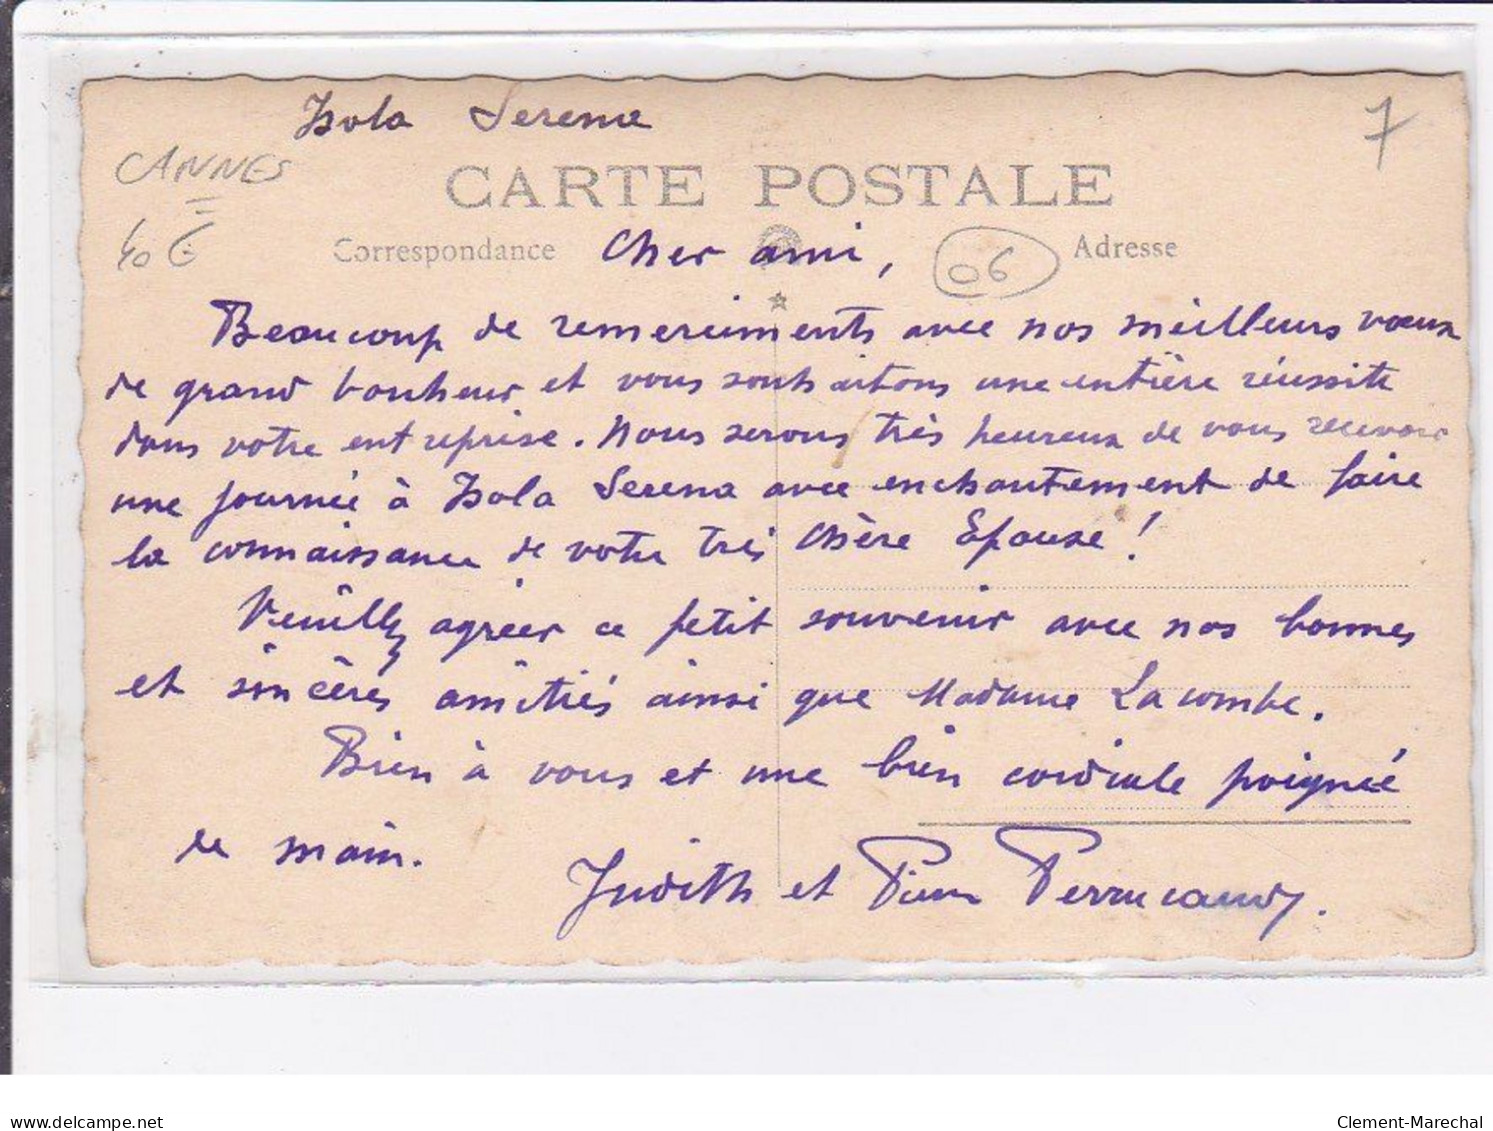 Isola Serena
7
CANNES
CARTE POSTALE
40 €
Correspondance
Cher ami,
06
Adresse
Beaucoup de remerciments avec nos meilleurs vœux
de grand bonheur et vous souhaitons une entière réussite
dans votre entreprise. Nous serons très heureux de vous recevoir
une journée à Isola Serena avec enchantement de faire
la connaissance de votre très chère Epouse !
Veuillez agréer ce petit souvenir avec nos bonnes
et sincères amitiés ainsi que Madame Lacombe.
Bien à vous et une bien cordiale poignée
de main.
Judith et Pierre Perrucaud.
www.delcampe.net
Clement-Marechal